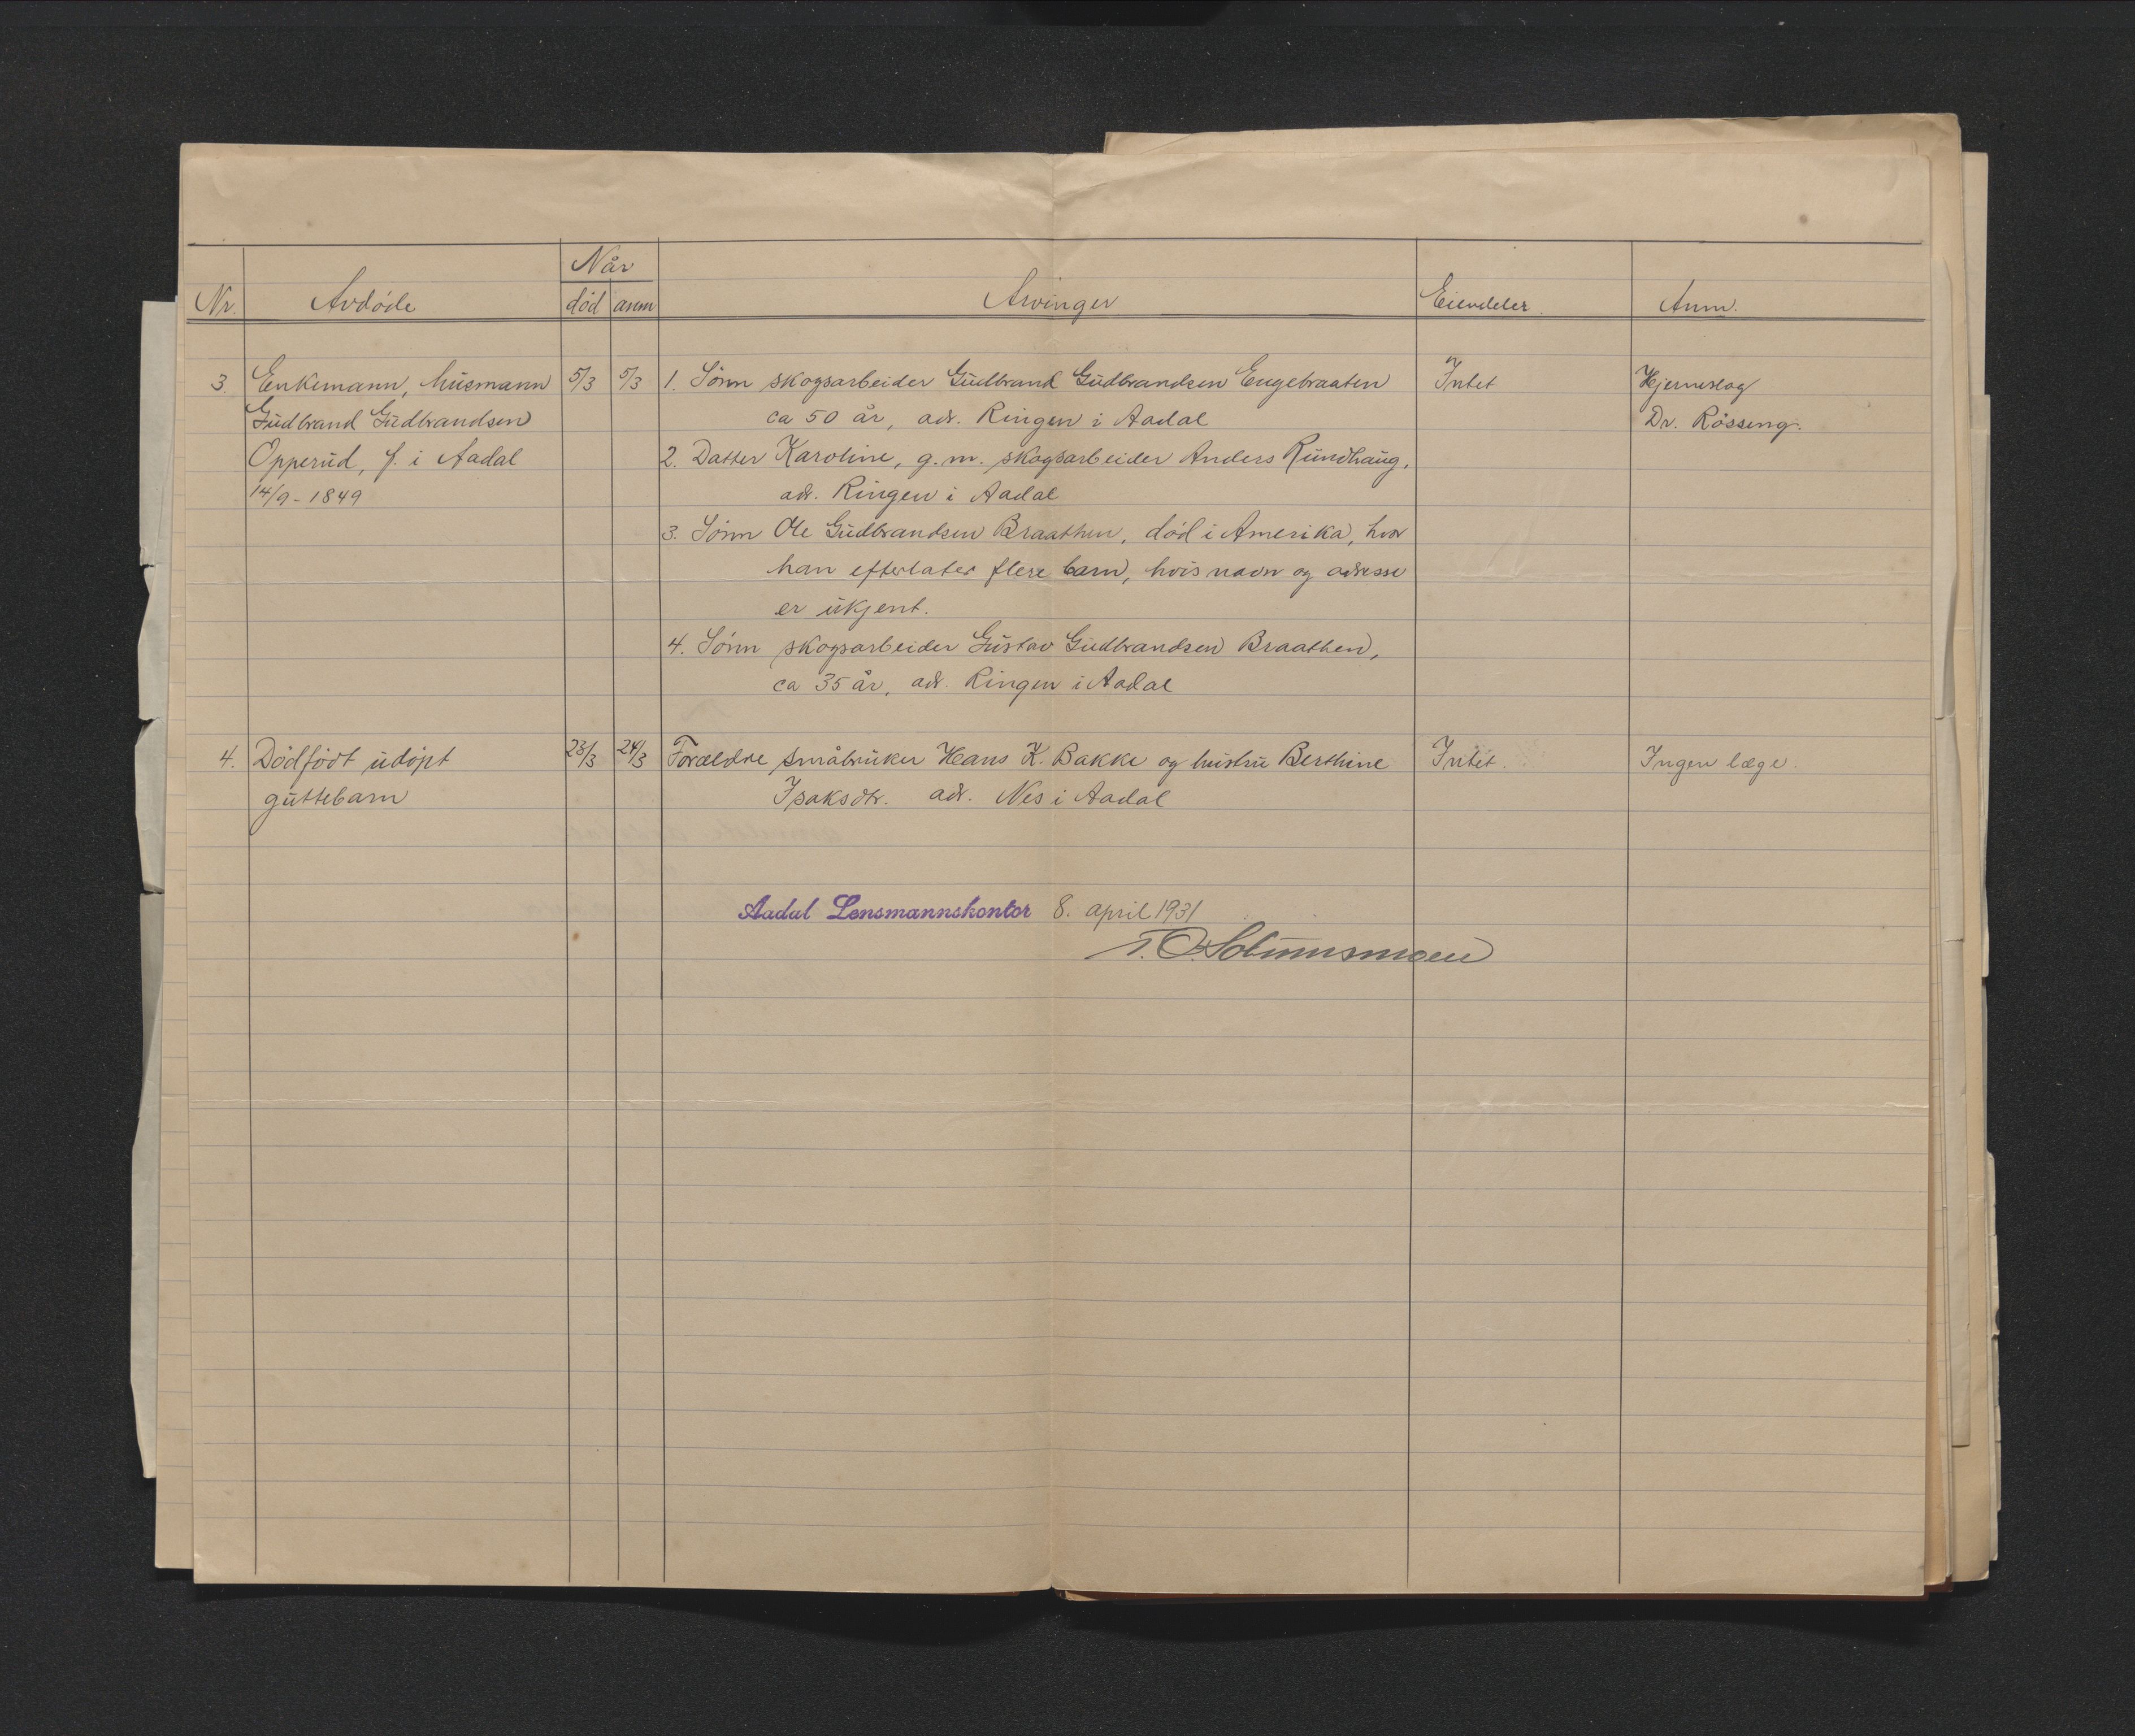 Når
Nr. Avdøde død anm Arvinger Eiendeler. Anm.
3. Enkemann, husmann 5/3 5/3 1. Sønn skogsarbeider Gudbrand Gudbrandsen Engebraaten Intet Hjerneslag
Gudbrand Gudbrandsen ca 50 år, adr. Ringen i Aadal Dr. Røsseng.
Opperud, f. i Aadal 2. Datter Karoline, g.m. skogsarbeider Anders Rundhaug,
14/9-1849 adr. Ringen i Aadal
3. Sønn Ole Gudbrandsen Braathen, død i Amerika, hvor
han efterlater flere barn, hvis navn og adresse
er ukjent.
4. Sønn skogsarbeider Gustav Gudbrandsen Braathen,
ca 35 år, adr. Ringen i Aadal
4. Dødfødt udøpt 23/3 24/3 Forældre småbruker Hans K. Bakke og hustru Berthine Intet. Ingen læge.
guttebarn Isaksdtr. adr. Nes i Aadal
Aadal Lensmannskontor 8. april 1931